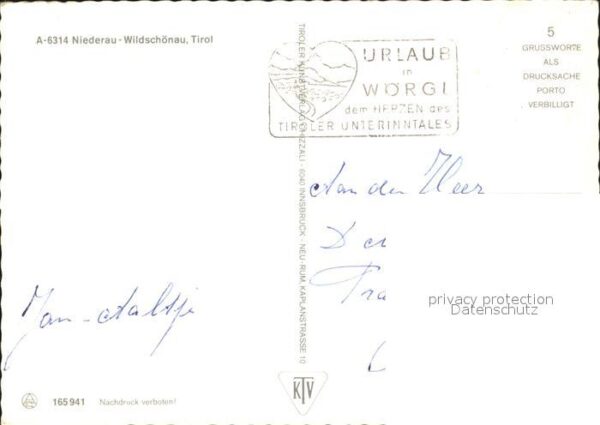 A-6314 Niederau - Wildschönau, Tirol
URLAUB
in
WÖRGL
dem HERZEN des
TIROLER UNTERINNTALES
5
GRUSSWORTE
ALS
DRUCKSACHE
PORTO
VERBILLIGT
TIROLER KUNSTVERLAG CHIZZALI · 6040 INNSBRUCK - NEU-RUM, KAPLANSTRASSE 10
Aan den Heer
D
Jan - Aaltje
privacy protection
Datenschutz
KTV
165941 Nachdruck verboten!